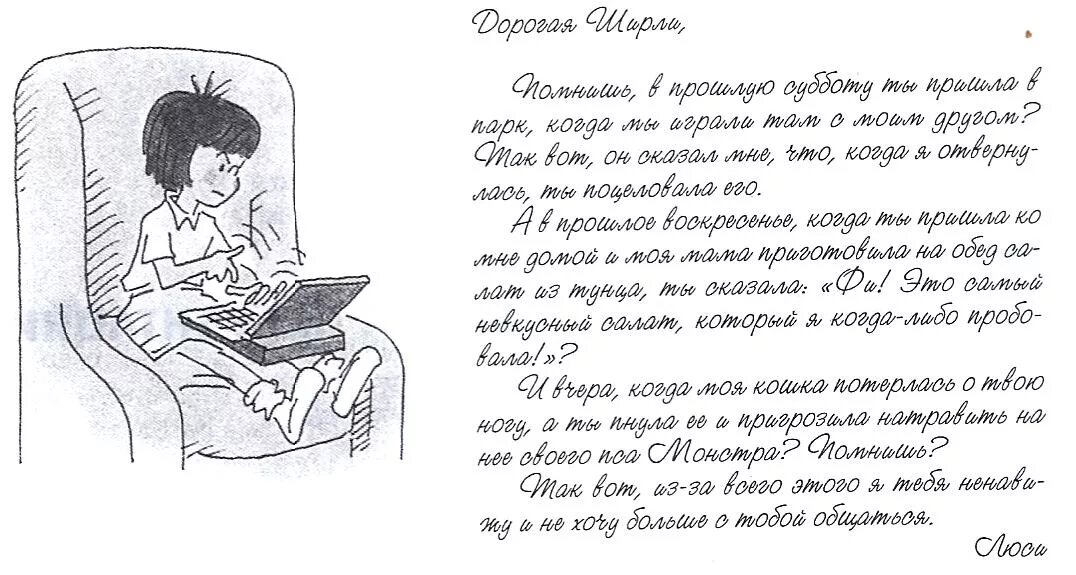 Дорогая Ширли,
Помнишь, в прошлую субботу ты пришла в
парк, когда мы играли там с моим другом?
Так вот, он сказал мне, что, когда я отверну-
лась, ты поцеловала его.
А в прошлое воскресенье, когда ты пришла ко
мне домой и моя мама приготовила на обед са-
лат из тунца, ты сказала: «Фи! Это самый
невкусный салат, который я когда-либо пробо-
вала!»?
И вчера, когда моя кошка потерлась о твою
ногу, а ты пнула ее и пригрозила натравить на
нее своего пса Монстра? Помнишь?
Так вот, из-за всего этого я тебя ненави-
жу и не хочу больше с тобой общаться.
Люси